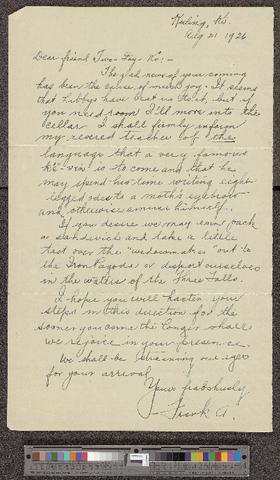 Kuling, Ki.
Aug 21 1926
Dear friend Two-Fay-Ko:-
The glad news of your coming
has been the cause of much joy. It seems
that Libbys have beat us to it, but if
you need room I'll move into the
cellar. I shall firmly inform
my revered teacher of the
language that a very famous
is to come and that he
may spend his time writing eight-
legged odes to a moth's eyebrow
and otherwise amuse himself.
If you desire we may even pack
a sandwich and take a little
trot over the "widowmaker" out to
the Iron Pagoda or disport ourselves
in the waters of the Three Falls.
I hope you will hasten your
steps in this direction for the
sooner you come the longer shall
we rejoice in your presence.
We shall be straining our eyes
for your arrival
Yours
Frank A.